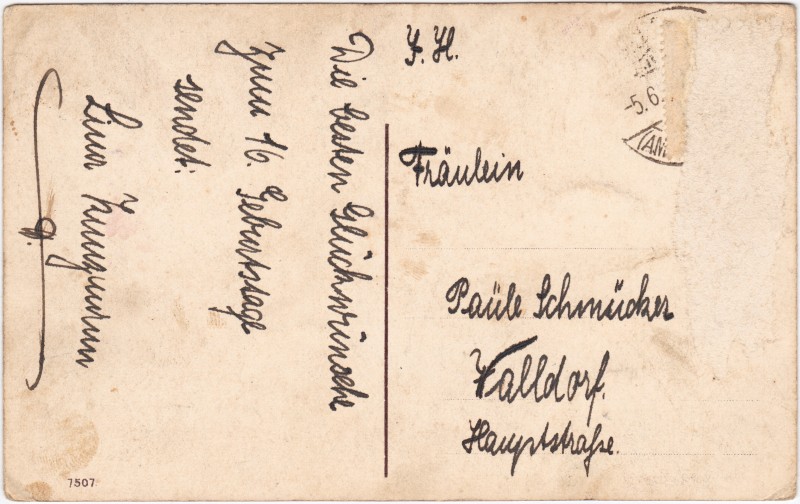 Die besten Glückwünsche
zum 16. Geburtstage
sendet:
Lina
F. H.
Fräulein
Paüle Schmücker
Walldorf.
Hauptstraße.
-5.6.
(AM
7507